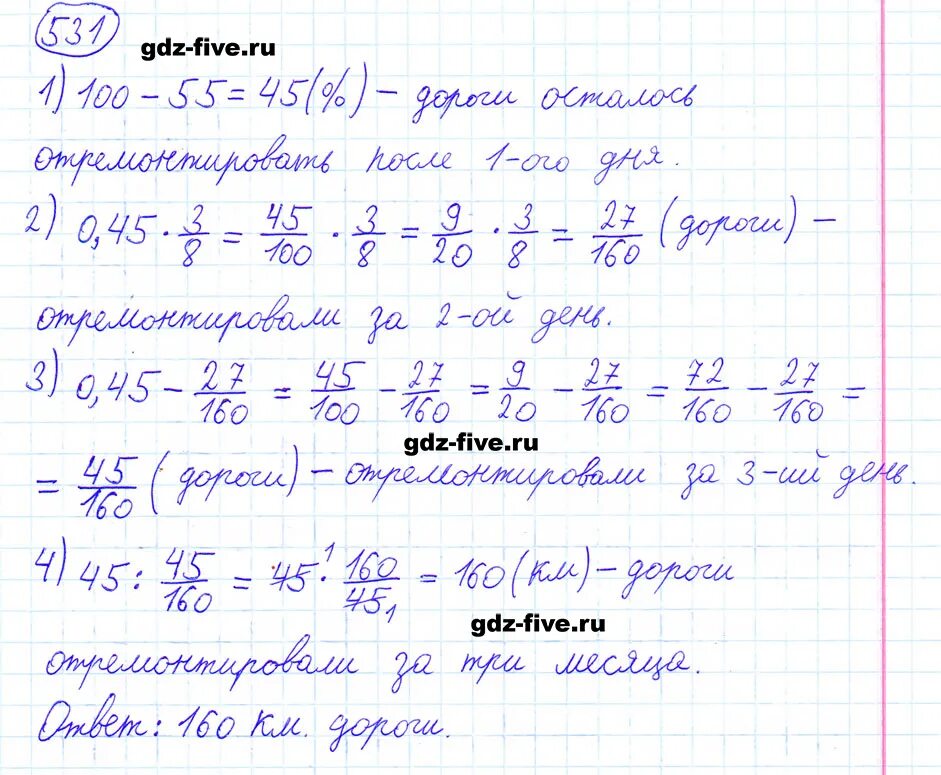 531
gdz-five.ru
1) 100 - 55 = 45 (%) - дороги осталось
отремонтировать после 1-ого дня.
2) 0,45 · 3/8 = 45/100 · 3/8 = 9/20 · 3/8 = 27/160 (дороги) -
отремонтировали за 2-ой день.
3) 0,45 - 27/160 = 45/100 - 27/160 = 9/20 - 27/160 = 72/160 - 27/160 =
gdz-five.ru
= 45/160 (дороги) - отремонтировали за 3-ий день.
4) 45 : 45/160 = 45 1 · 160/45 1 = 160 (км) - дороги
gdz-five.ru
отремонтировали за три месяца.
Ответ: 160 км. дороги.